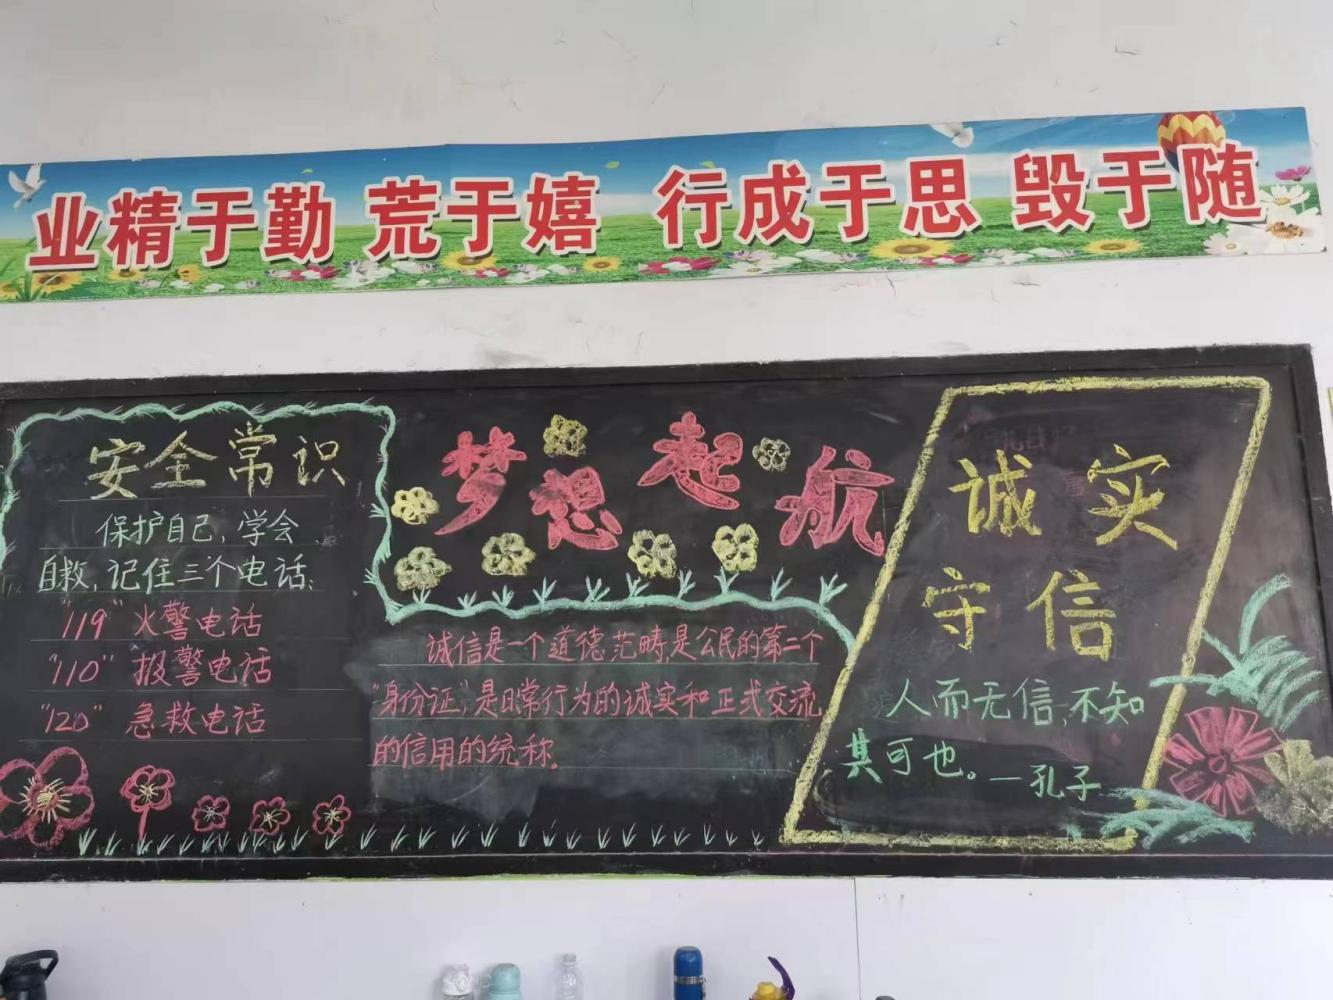 业精于勤 荒于嬉 行成于思 毁于随
安全常识
保护自己,学会
自救,记住三个电话:
"119"火警电话
"110"报警电话
"120"急救电话
梦想起航
诚信是一个道德范畴,是公民的第二个
"身份证",是日常行为的诚实和正式交流
的信用的统称.
诚实
守信
人而无信,不知
其可也。—孔子